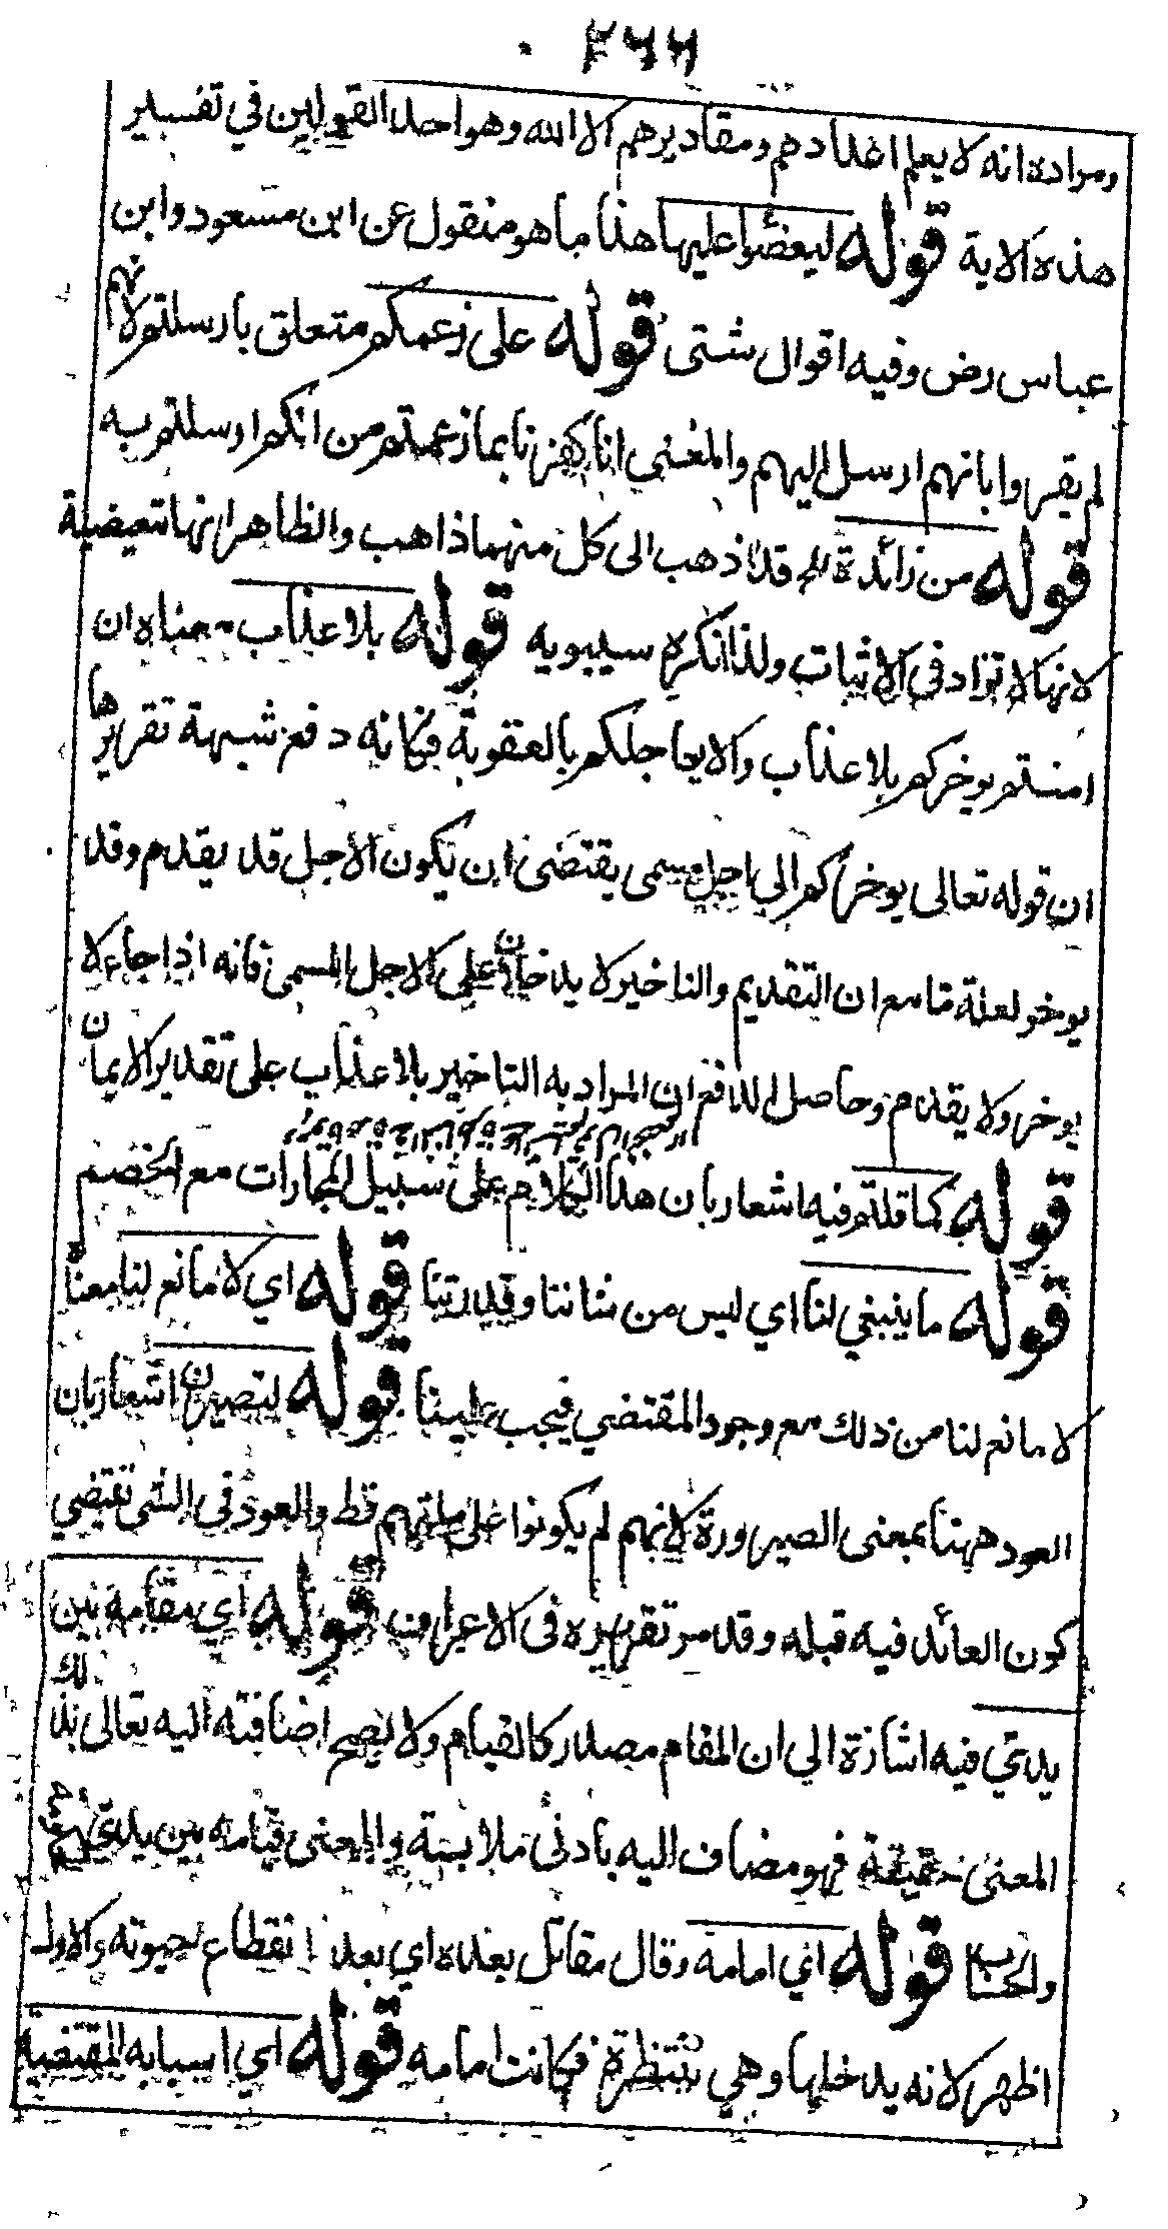 ٢٦٦
ومراده انه لا يعلم اعدادهم ومقاديرهم الا الله وهو احد القولين في تفسير
هذه الاية قوله ليعضوا عليها هذا ما هو منقول عن ابن مسعود وابن
عباس رض وفيه اقوال شتى قوله على زعمكم متعلق بارسلتم لانهم
لم يقروا بانهم ارسل اليهم والمعنى انا كفرنا بما زعمتم من انكم ارسلتم به
قوله من زائدة الخ قد ذهب الى كل منهما ذاهب والظاهر انها تبعيضية
لانها لا تزاد في الاثبات ولذا انكره سيبويه قوله بلا عذاب معناه ان
امنتم يوخركم بلا عذاب والا يعاجلكم بالعقوبة فكانه دفع شبهة تقريرها
ان قوله تعالى يوخركم الي اجل مسمى يقتضى ان يكون الاجل قد يقدم وقد
يوخر لعلة ما مع ان التقديم والتاخير لا يدخلان على الاجل المسمى فانه اذا جاء لا
يوخر ولا يقدم وحاصل الدفع ان المراد به التاخير بلا عذاب على تقدير الايمان
قوله كما قلتم فيه اشعار بان هذا الكلام على سبيل المجارات مع الخصم
قوله ما ينبغي لنا اي ليس من شاننا وقدرتنا قوله اي لا مانع لنا معناه
لا مانع لنا من ذلك مع وجود المقتضي فيجب علينا قوله لتصيرن اشعار بان
العود ههنا بمعنى الصيرورة لانهم لم يكونوا على ملتهم قط والعود في الشي تقتضي
كون العائد فيه قبله وقد مر تقريره فى الاعراف قوله اي مقامه بين
يدتي فيه اشارة الي ان المقام مصدر كالقيام ولا يصح اضافته اليه تعالى بذلك
المعنى حقيقة فهو مضاف اليه بادنى ملابسة والمعنى قيامه بين يدي
والحساب قوله اي امامه وقال مقاتل بعده اي بعد انقطاع حيوته والاول
اظهر لانه يدخلها وهي منتظرة فكانت امامه قوله اي اسبابه المقتضية